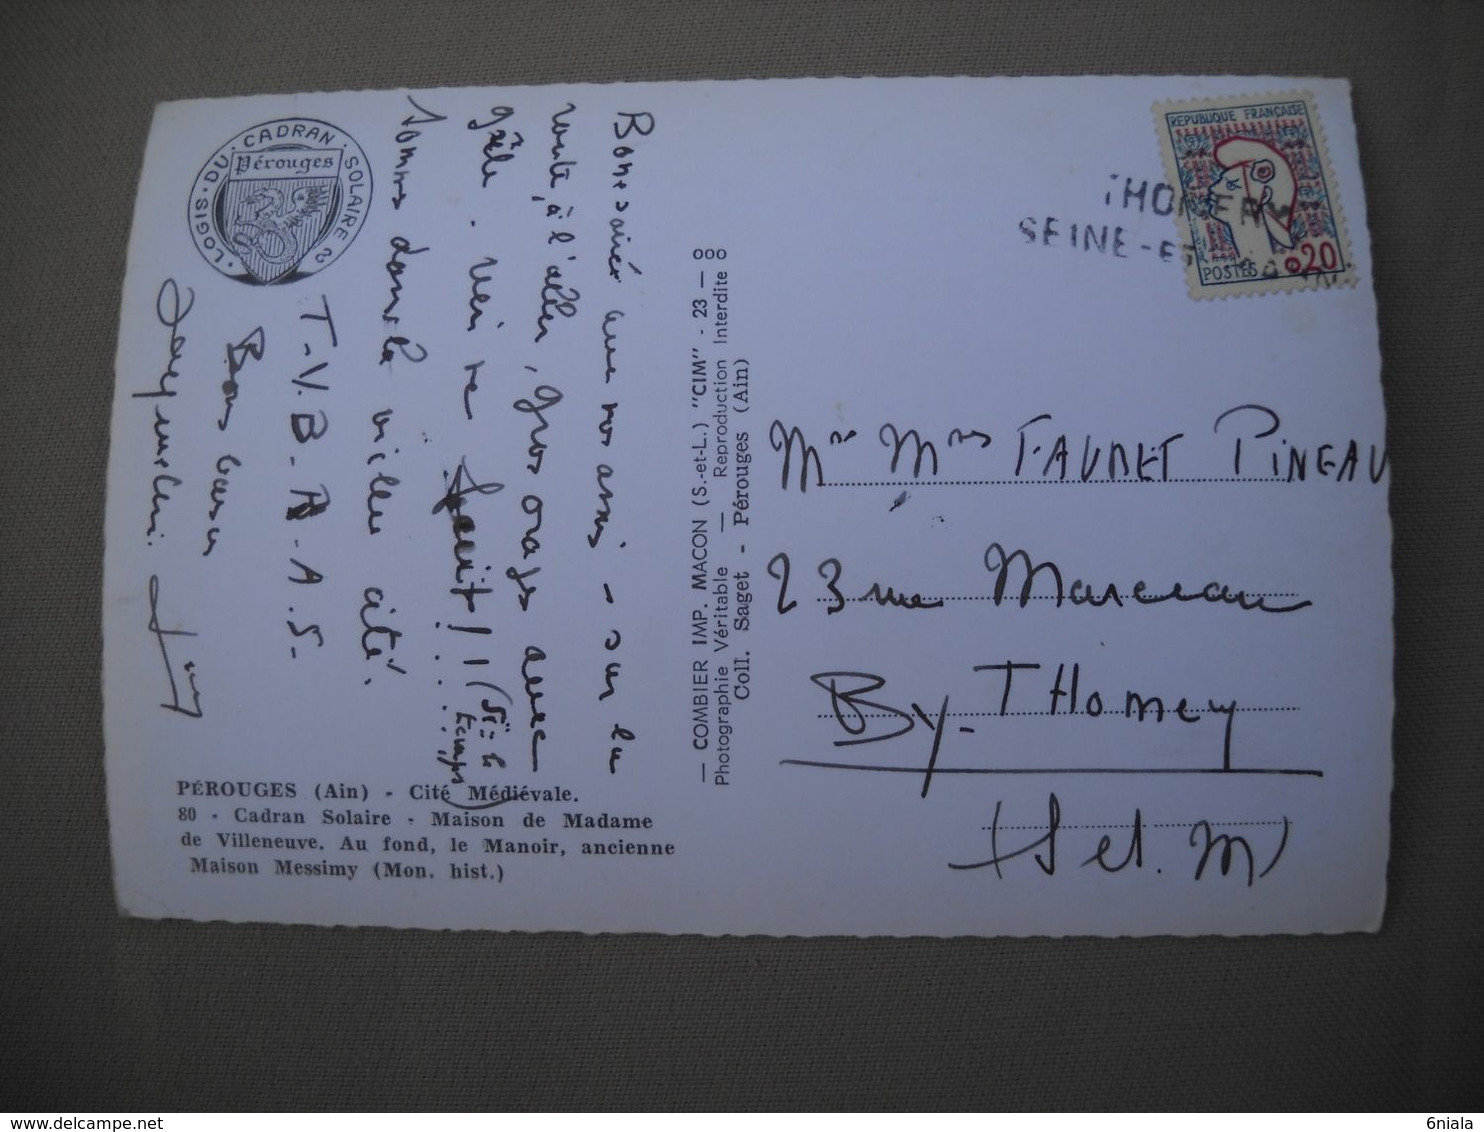 LOGIS · DU · CADRAN · SOLAIRE
Pérouges
Bonne soirée avec vos amis - sur la
route, à l'aller, gros orages avec
grêle.
Sommes dans la vieille cité.
T-V.B-R-A.S-
Bons baisers
Jacqueline.
PÉROUGES (Ain) - Cité Médiévale.
80 - Cadran Solaire - Maison de Madame
de Villeneuve. Au fond, le Manoir, ancienne
Maison Messimy (Mon. hist.)
— COMBIER IMP. MACON (S.-et-L.) "CIM" - 23 — ooo
Photographie Véritable — Reproduction Interdite o
Coll. Saget - Pérouges (Ain)
REPUBLIQUE FRANÇAISE
POSTES 0,20
THOMERY
SEINE-ET-MARNE
Mr Mmes FAUDET PINEAU
23 rue Marceau
By-THomery
(S et. M)
delcampe.net
6niala